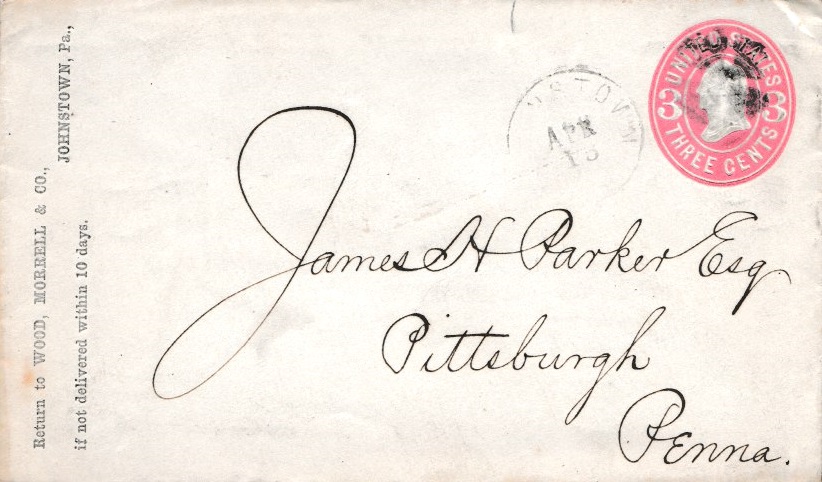 Return to WOOD, MORRELL & CO.,
JOHNSTOWN, Pa.,
if not delivered within 10 days.
APR
UNITED STATES
3 3
THREE CENTS
James H Parker Esq
Pittsburgh
Penna.